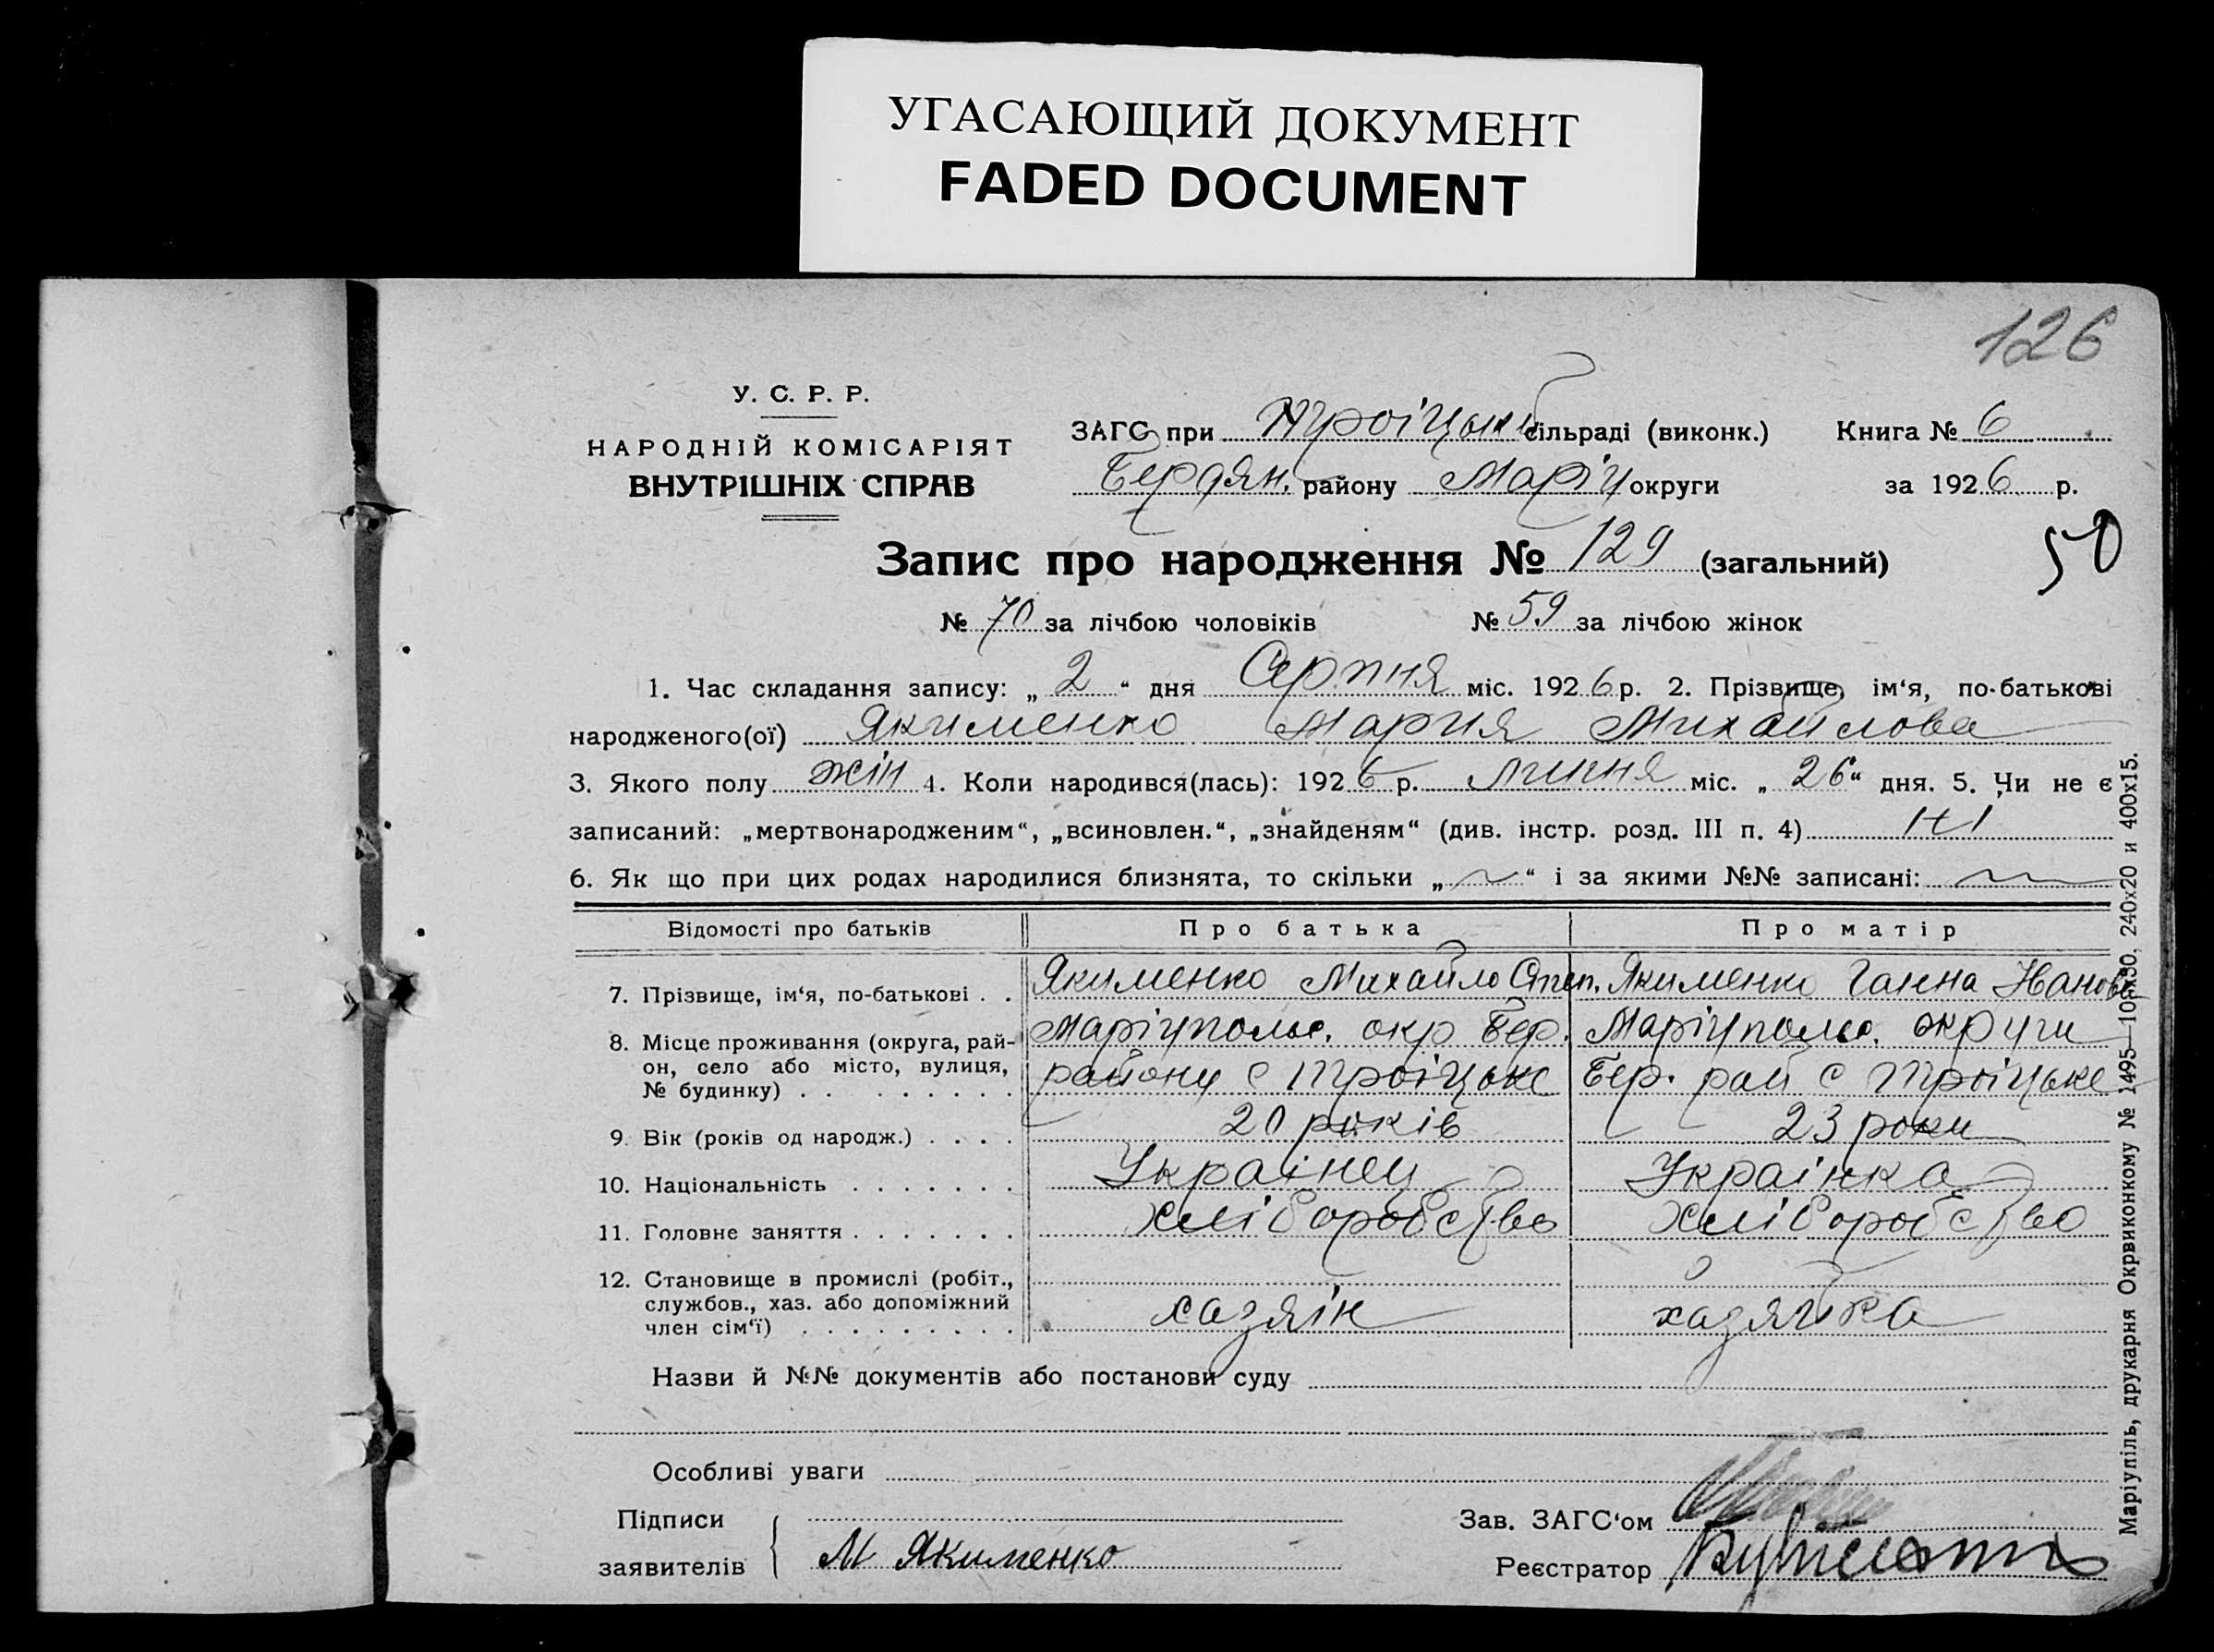 УГАСАЮЩИЙ ДОКУМЕНТ
FADED DOCUMENT
126
У. С. Р. Р.
НАРОДНІЙ КОМІСАРІЯТ
ВНУТРІШНІХ СПРАВ
ЗАГС при Троіцьк сільраді (виконк.) Книга № 6
Бердян. району Маріу округи за 1926 р.
50
Запис про народження № 129 (загальний)
№ 70 за лічбою чоловіків № 59 за лічбою жінок
1. Час складання запису: „ 2 “ дня Серпня міс. 1926 р. 2. Прізвище, ім‘я, по-батькові
народженого(ої) Якименко Мария Михайлова
3. Якого полу жін 4. Коли народився(лась): 1926 р. липня міс. „ 26 “ дня. 5. Чи не є
записаний: „мертвонародженим“, „всиновлен.“, „знайденям“ (див. інстр. розд. III п. 4) ні
6. Як що при цих родах народилися близнята, то скільки „ ~ “ і за якими №№ записані: ~
Відомості про батьків Про батька Про матір
7. Прізвище, ім‘я, по-батькові . . Якименко Михайло Степ. Якименко Ганна Іванова
8. Місце проживання (округа, рай- Маріупольс. окр Бер. Маріупольс. округи
он, село або місто, вулиця, району с Троіцьке Бер. рай с Троіцьке
№ будинку) . . . . . . . . .
9. Вік (років од народж.) . . . . 20 років 23 роки
10. Національність . . . . . . . Украінец Украінка
11. Головне заняття . . . . . . . Хліборобство Хліборобство
12. Становище в промислі (робіт.,
службов., хаз. або допоміжний
член сім‘ї) . . . . . . . . . хазяін хазяйка
Назви й №№ документів або постанови суду
Особливі уваги
Підписи
заявителів М Якименко
Зав. ЗАГС‘ом
Реєстратор
Маріупіль, друкарня Окрвиконкому № 1495—108х30. 240х20 и 400х15.